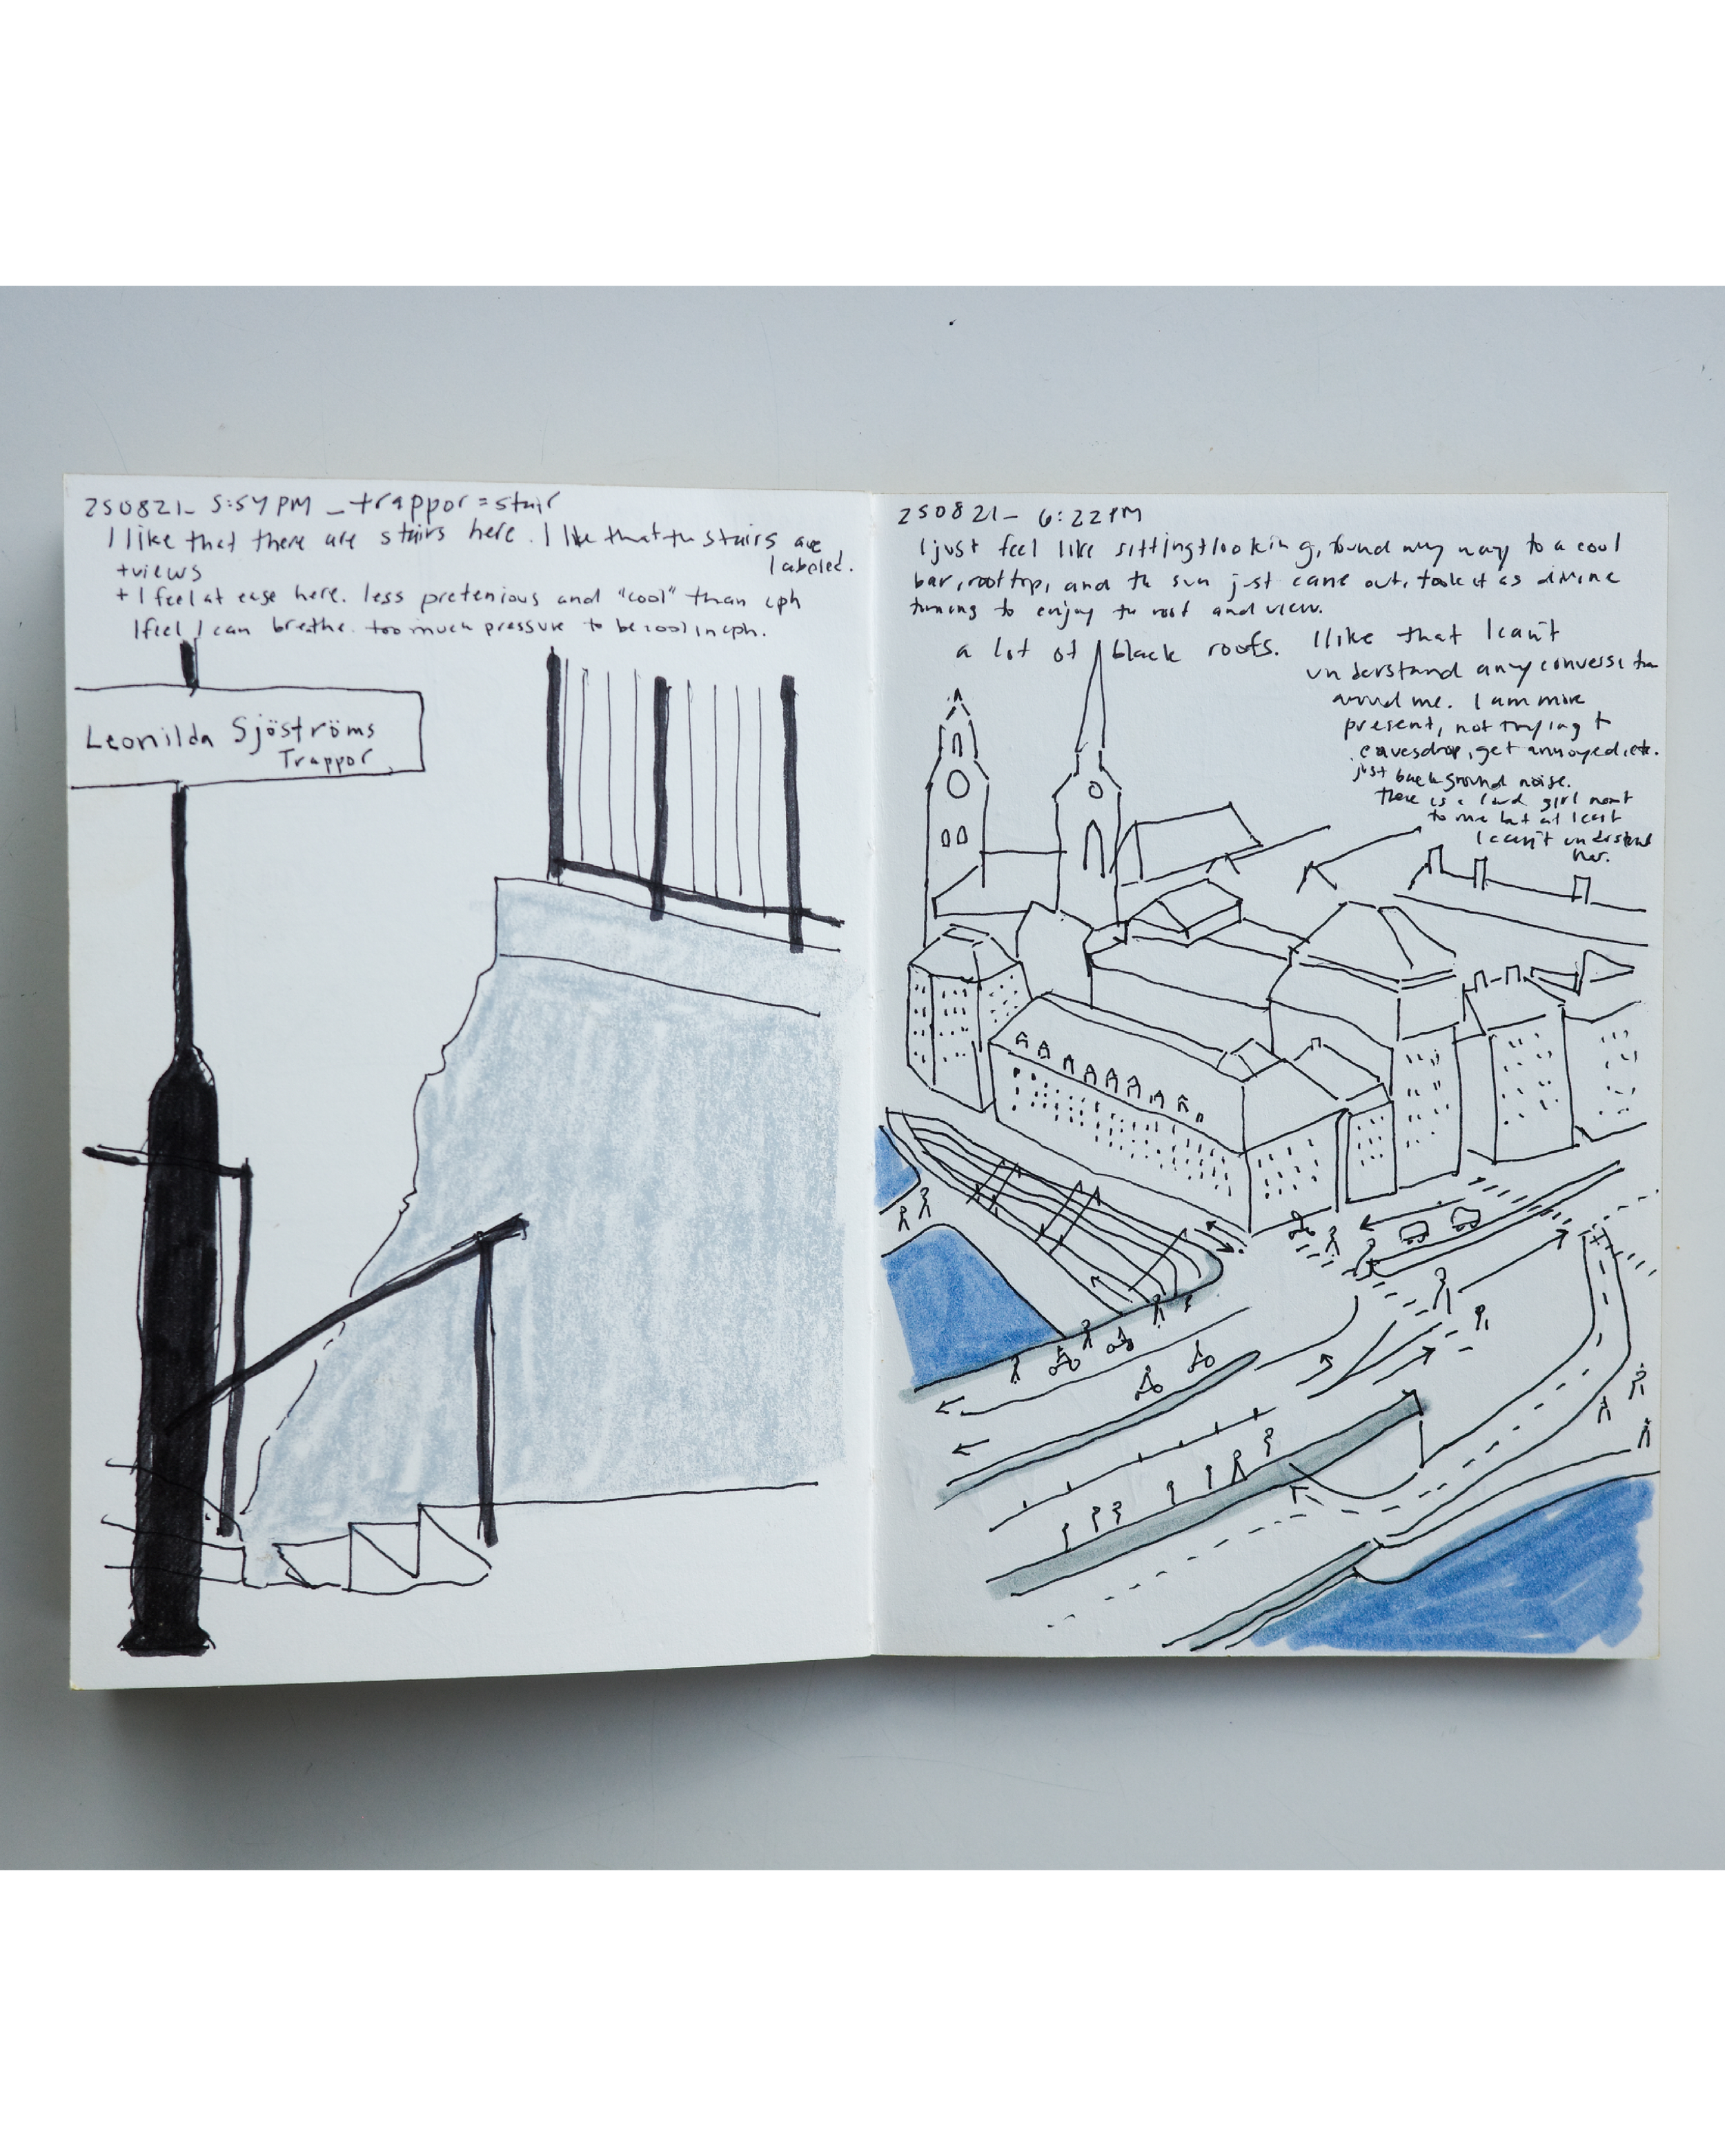 250821_ 5:54 PM _ trappor = stair
I like that there are stairs here. I like that the stairs are
labeled.
+ views
+ I feel at ease here. less pretenious and "cool" than cph
I feel I can breathe. too much pressure to be cool in cph.
Leonilda Sjöströms
Trappor
250821_ 6:22 PM
I just feel like sitting + looking, found my way to a cool
bar, rooftop, and the sun just came out, took it as divine
timing to enjoy the roof and view.
a lot of black roofs.
I like that I can't
understand any conversation
around me. I am more
present, not trying to
eavesdrop, get annoyed, etc.
just background noise.
There is a loud girl next
to me but at least
I can't understand
her.